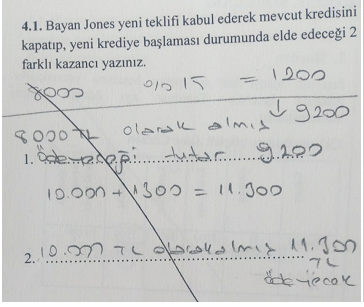 4.1. Bayan Jones yeni teklifi kabul ederek mevcut kredisini
kapatıp, yeni krediye başlaması durumunda elde edeceği 2
farklı kazancı yazınız.
8000 %15 = 1200
↓ 9200
8000 TL olarak almış
1. Ödeyeceği tutar 9200
10.000 + 1300 = 11.300
2. 10.000 TL olarak almış 11.300
TL
ödeyecek